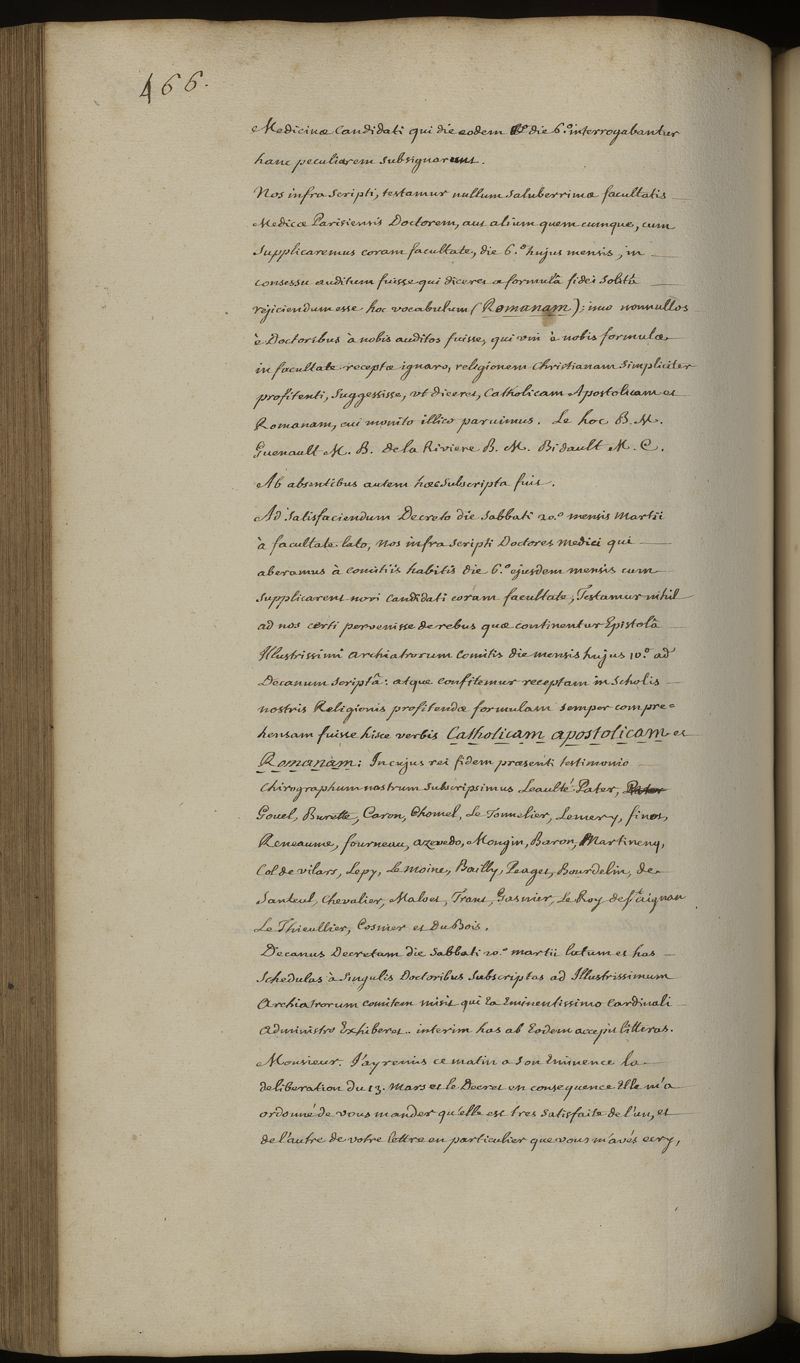 466.
Medicinæ Candidati qui die eodem die 6.º interrogabantur
hanc peculiarem subsignarunt.
Nos infra scripti, testamur nullum saluberrimæ facultatis
Medicæ Parisiensis Doctorem, aut alium quemcumque, cum
Supplicaremus coram facultate, die 6.º hujus mensis, in
consessu auditum fuisse qui diceret a formulâ fidei Solitâ
rejiciendum esse hoc vocabulum (Romanam); imo nonnullos
è Doctoribus à nobis auditos fuisse, qui è nobis formulæ
in facultate receptæ ignaro, religionem Christianam Simpliciter
profitenti, Suggessisse, ut diceret, Catholicam Apostolicam et
Romanam, cui monito illico paruimus. Le hoc B. M.
Guenault M. B. de la Riviere B. M. Bidault M. C.
Ab absentibus autem hæc Subscripta fuit.
Ad Satisfaciendum Decreto die Sabbati 20.º mensis Martii
à facultate lato, Nos infra scripti Doctores medici qui
aberamus à comitiis habitis die 6.º ejusdem mensis cum
Supplicarent novi Candidati coram facultate, Testamur nihil
ad nos certi pervenisse de rebus quæ continentur Epistolâ
Illustrissimi Archiatrorum Comitis die mensis hujus 10.º ad
Decanum scriptâ: atque confitemur receptam in Scholis
nostris Religionis profitendæ formulam semper compre=
hensam fuisse hisce verbis Catholicam apostolicam et
Romanam: In cujus rei fidem præsenti testimonio
Chirographum nostrum subscripsimus Leaulté Pater,
Gouel, Burette, Caron, Chomel, Le Tonnelier, Lemery, finot,
Reneaume, fourneau, azevedo, Mongin, Baron, Martinenq,
Col de vilars, Lepy, Le moine, Bailly, Peaget, Bourdelin, de
Santeul, Chevalier, Maloet, Trant, Gasnier, Le Roy de St aignan
Le Thieullier, Cosnier et Du Bois.
Decanus Decretum die Sabbati 20.º martii latum et has
Schedulas à Singulis Doctoribus Subscriptas ad Illustrissimum
Archiatrorum comitem misit qui Ea Eminentissimo Cardinali
administro Exhiberet.. interim has ab Eodem accepit litteras.
Monsieur. J'ay remis ce matin a Son Eminence la
deliberation du 13. Mars et le Decret en consequence Elle m'a
ordonné de vous mander qu'elle est tres Satisfaite de l'un, et
de l'autre de votre lettre en particulier que vous m'avés ecry,